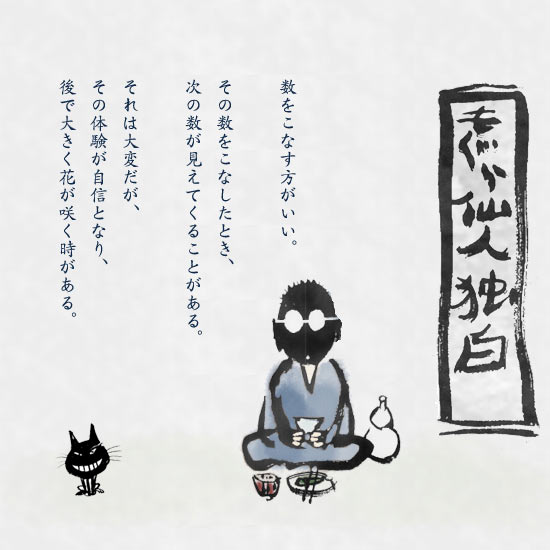 仙人独白
数をこなす方がいい。
その数をこなしたとき、
次の数が見えてくることがある。
それは大変だが、
その体験が自信となり、
後で大きく花が咲く時がある。